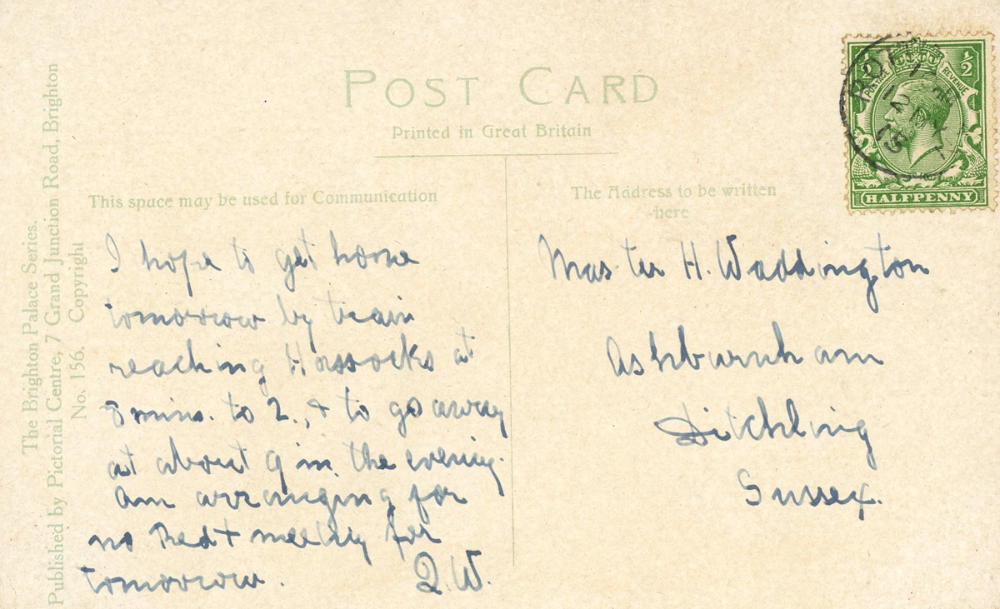 POST CARD
Printed in Great Britain
This space may be used for Communication
The Address to be written
here
The Brighton Palace Series.
Published by Pictorial Centre, 7 Grand Junction Road, Brighton
No. 156. Copyright
½ ½
POSTAGE REVENUE
HALFPENNY
I hope to get home
tomorrow by train
reaching Hassocks at
3 mins. to 2., & to go away
at about 9 in the evening.
Am arranging for
no Red + meeting for
tomorrow.
Q.W.
Master H. Waddington
Ashburnham
Ditchling
Sussex.